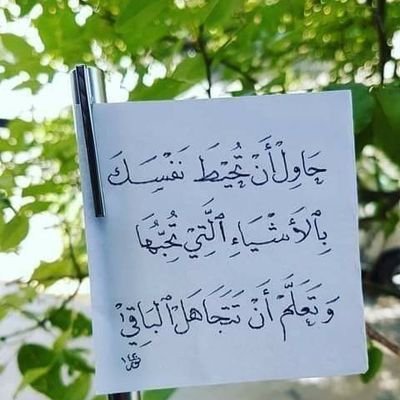 حَاوِلْ أَنْ تُحِيْطَ نَفْسَكَ
بِالْأَشْيَاءِ الَّتِيْ تُحِبُّهَا
وَتَعَلَّمْ أَنْ تَتَجَاهَلَ الْبَاقِيْ